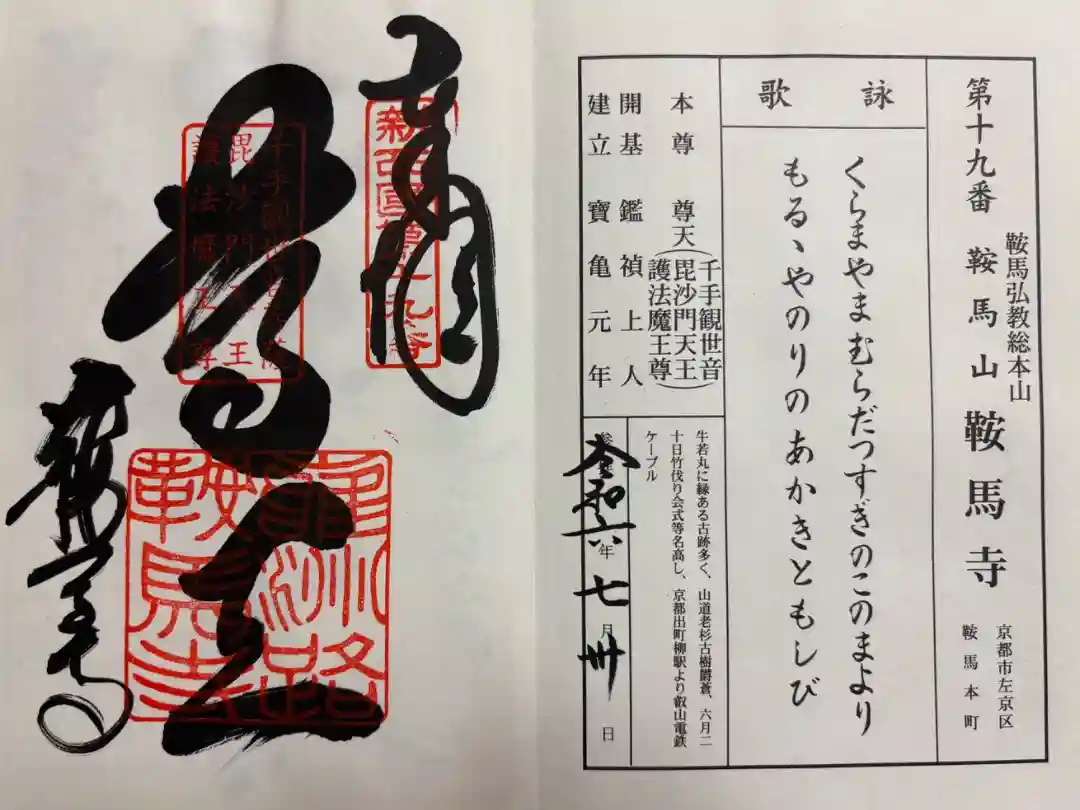 第十九番 鞍馬山 鞍馬寺
鞍馬弘教総本山
京都市左京区
鞍馬本町
詠歌
くらまやま むらだつすぎのこのまより
もるゝやのりの あかきともしび
本尊 尊天(千手観世音
毘沙門天王
護法魔王尊)
開基 鑑禎上人
建立 寶亀元年
牛若丸に縁ある古跡多く、山道老杉古樹欝蒼、六月二
十日竹伐り会式等名高し、京都出町柳駅より叡山電鉄
ケーブル
令和六年七月卅日
奉拝
新西國第十九番
尊天
千手観世音菩薩
毘沙門天王
護法魔王尊
鞍馬寺
鞍馬寺